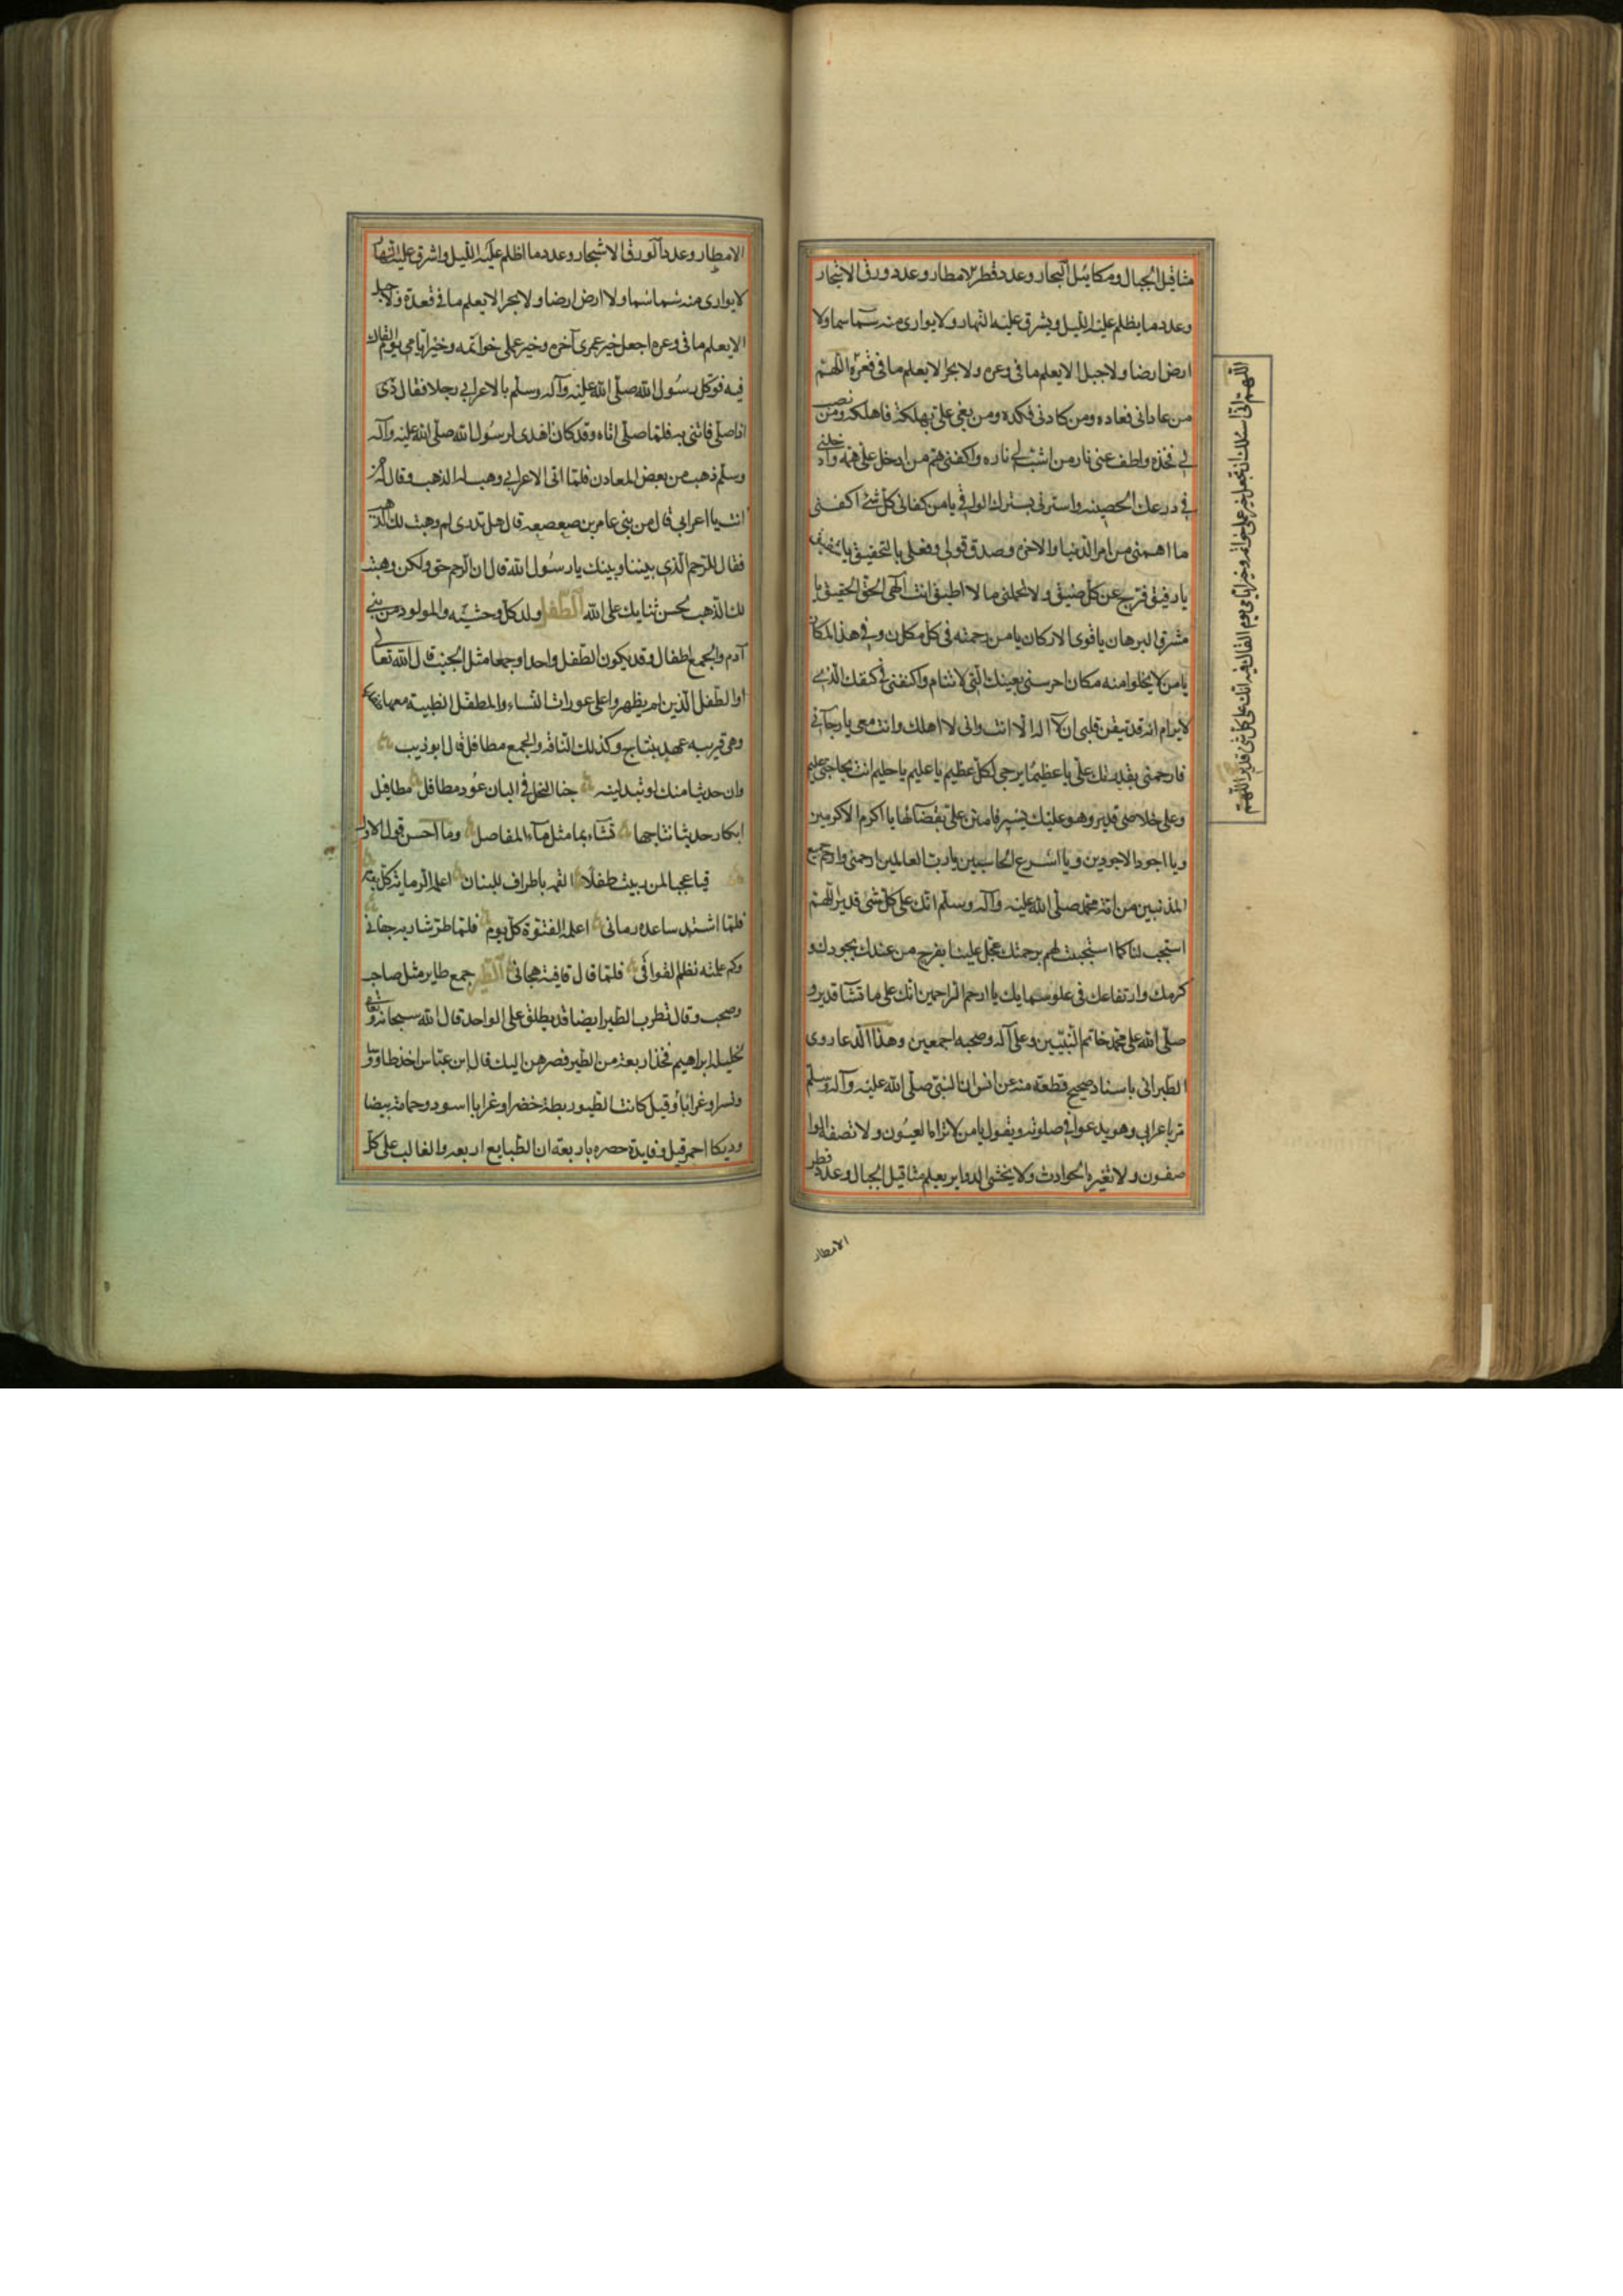 مثاقيل الجبال ومكائيل البحار وعدد قطر الامطار وعدد ورق الاشجار
وعدد ما يظلم عليه الليل ويشرق عليه النهار ولا يوارى منه سمآ سما ولا
ارض ارضا ولا جبل الا يعلم ما فى وعره ولا بحر الا يعلم ما فى قعره اللهم
من عادانى فعاده ومن كادنى فكده ومن بغى على بهلكة فاهلكه ومن نصب
لى فخذه واطف عنى نار من اشب لى ناره واكفنى هم من ادخل على همه وادخلنى
فى درعك الحصينه واسترنى بسترك الواقى يا من كفانى كل شئ اكفنى
ما اهمنى من امر الدنيا والاخره وصدق قولى وفعلى بالتحقيق يا شفيق
يا رفيق فرج عن كل ضيق ولا تحملنى ما لا اطيق انت الهى الحق الحقيق يا
مشرق البرهان يا قوى الاركان يا من رحمته فى كل مكان وفى هذا المكان
يا من لا يخلوا منه مكان احرسنى بعينك التى لا تنام واكنفنى فى كنفك الذى
لا يرام انه قد تيقن قلبى ان لآ اله الا انت وانى لا اهلك وانت معى يا رجآئى
فارحمنى بقدرتك على يا عظيمًا يرجى لكل عظيم يا عليم يا حليم انت بحاجتى عليم
وعلى خلاصى قدير وهو عليك يسير فامنن على بقضآئها يا اكرم الاكرمين
ويا اجود الاجودين ويا اسرع الحاسبين يا رب العالمين ارحمنى وارحم جميع
المذنبين من امة محمد صلى الله عليه وآله وسلم انك على كل شئ قدير اللهم
استجب لنا كما استجبت لهم برحمتك عجل علينا بفرج من عندك بجودك و
كرمك وارتفاعك فى علو سمايك يا ارحم الراحمين انك على ما تشآ قدير و
صلى الله على محمد خاتم النبيين وعلى آله وصحبه اجمعين وهذا الدعا روى
الطبرانى باسناد صحيح قطعة منه عن انس ان النبى صلى الله عليه وآله وسلم
مر باعرابى وهو يدعوا فى صلوته ويقول يا من لا تراه العيون ولا تصفه الوا
صفون ولا تغيره الحوادث ولا يخشى الدواير يعلم مثاقيل الجبال وعدد قطر
الامطار
اللهم انى اسئلك ان تجعل خير عملى خواتمه وخير ايامى يوم القاك فيه انك على كل شئ قدير اللهم
الامطار وعدد الورق الاشجار وعدد ما اظلم عليه الليل واشرق عليه النهار
لا يوارى منه سما سما ولا ارض ارضا ولا بحر الا يعلم ما فى قعره ولا جبل
الا يعلم ما فى وعره اجعل خير عمرى آخره وخير عملى خواتمه وخير ايامى يوم القاك
فيه فوكل رسول الله صلى الله عليه وآله وسلم بالاعرابى رجلا فقال
اذا صلى فائتنى به فلما صلى اتاه وقد كان اهدى لرسول الله صلى الله عليه وآله
وسلم ذهب من بعض المعادن فلما اتى الاعرابى وهب له الذهب وقال له ممن
انت يا اعرابى قال من بنى عامر بن صعصعه قال هل تدرى لم وهبت لك الذهب
فقال للرحم الذى بيننا وبينك يا رسول الله قال ان للرحم حق ولكن وهبت
لك الذهب لحسن ثنايك على الله الطفل ولد كل وحشيه والمولود من بنى
آدم والجمع اطفال وقد يكون الطفل واحدا وجمعا مثل الجنب قال الله تعالى
او الطفل الذين لم يظهروا على عورات النساء والمطفل الظبية معها
وهى قريبه عهد بنتاج وكذلك الناقه والجمع مطافل قال ابو ذيب
وان حديثا منك لو تبدلينه جنا النحل فى البان عُود مطافل مطافيل
ابكار حديث نتاجها تشاء بما مثل مآء المفاصل وما احسن قول الاول
فيا عجبا لمن ربيت طفلًا القمه باطراف البنان اعلمه الرماية كل يوم
فلما اشتد ساعده رمانى اعلمه الفتوة كل يوم فلما طر شاربه جفانى
وكم علمته نظم القوافى فلما قال قافية هجانى الطير جمع طاير مثل صاحب
وصحب وقال قطرب الطير ايضا قد يطلق على الواحد قال الله سبحانه وتعالى
لخليله ابراهيم فخذ اربعة من الطير فصرهن اليك قال ابن عباس اخذ طاووسا
ونسرا وغرابًا وقيل كانت الطيور بطة خضرا وغرابا اسود وحمامة بيضا
وديكا احمر قيل وفايدة حصره باربعة ان الطبايع اربعه والغالب على كل